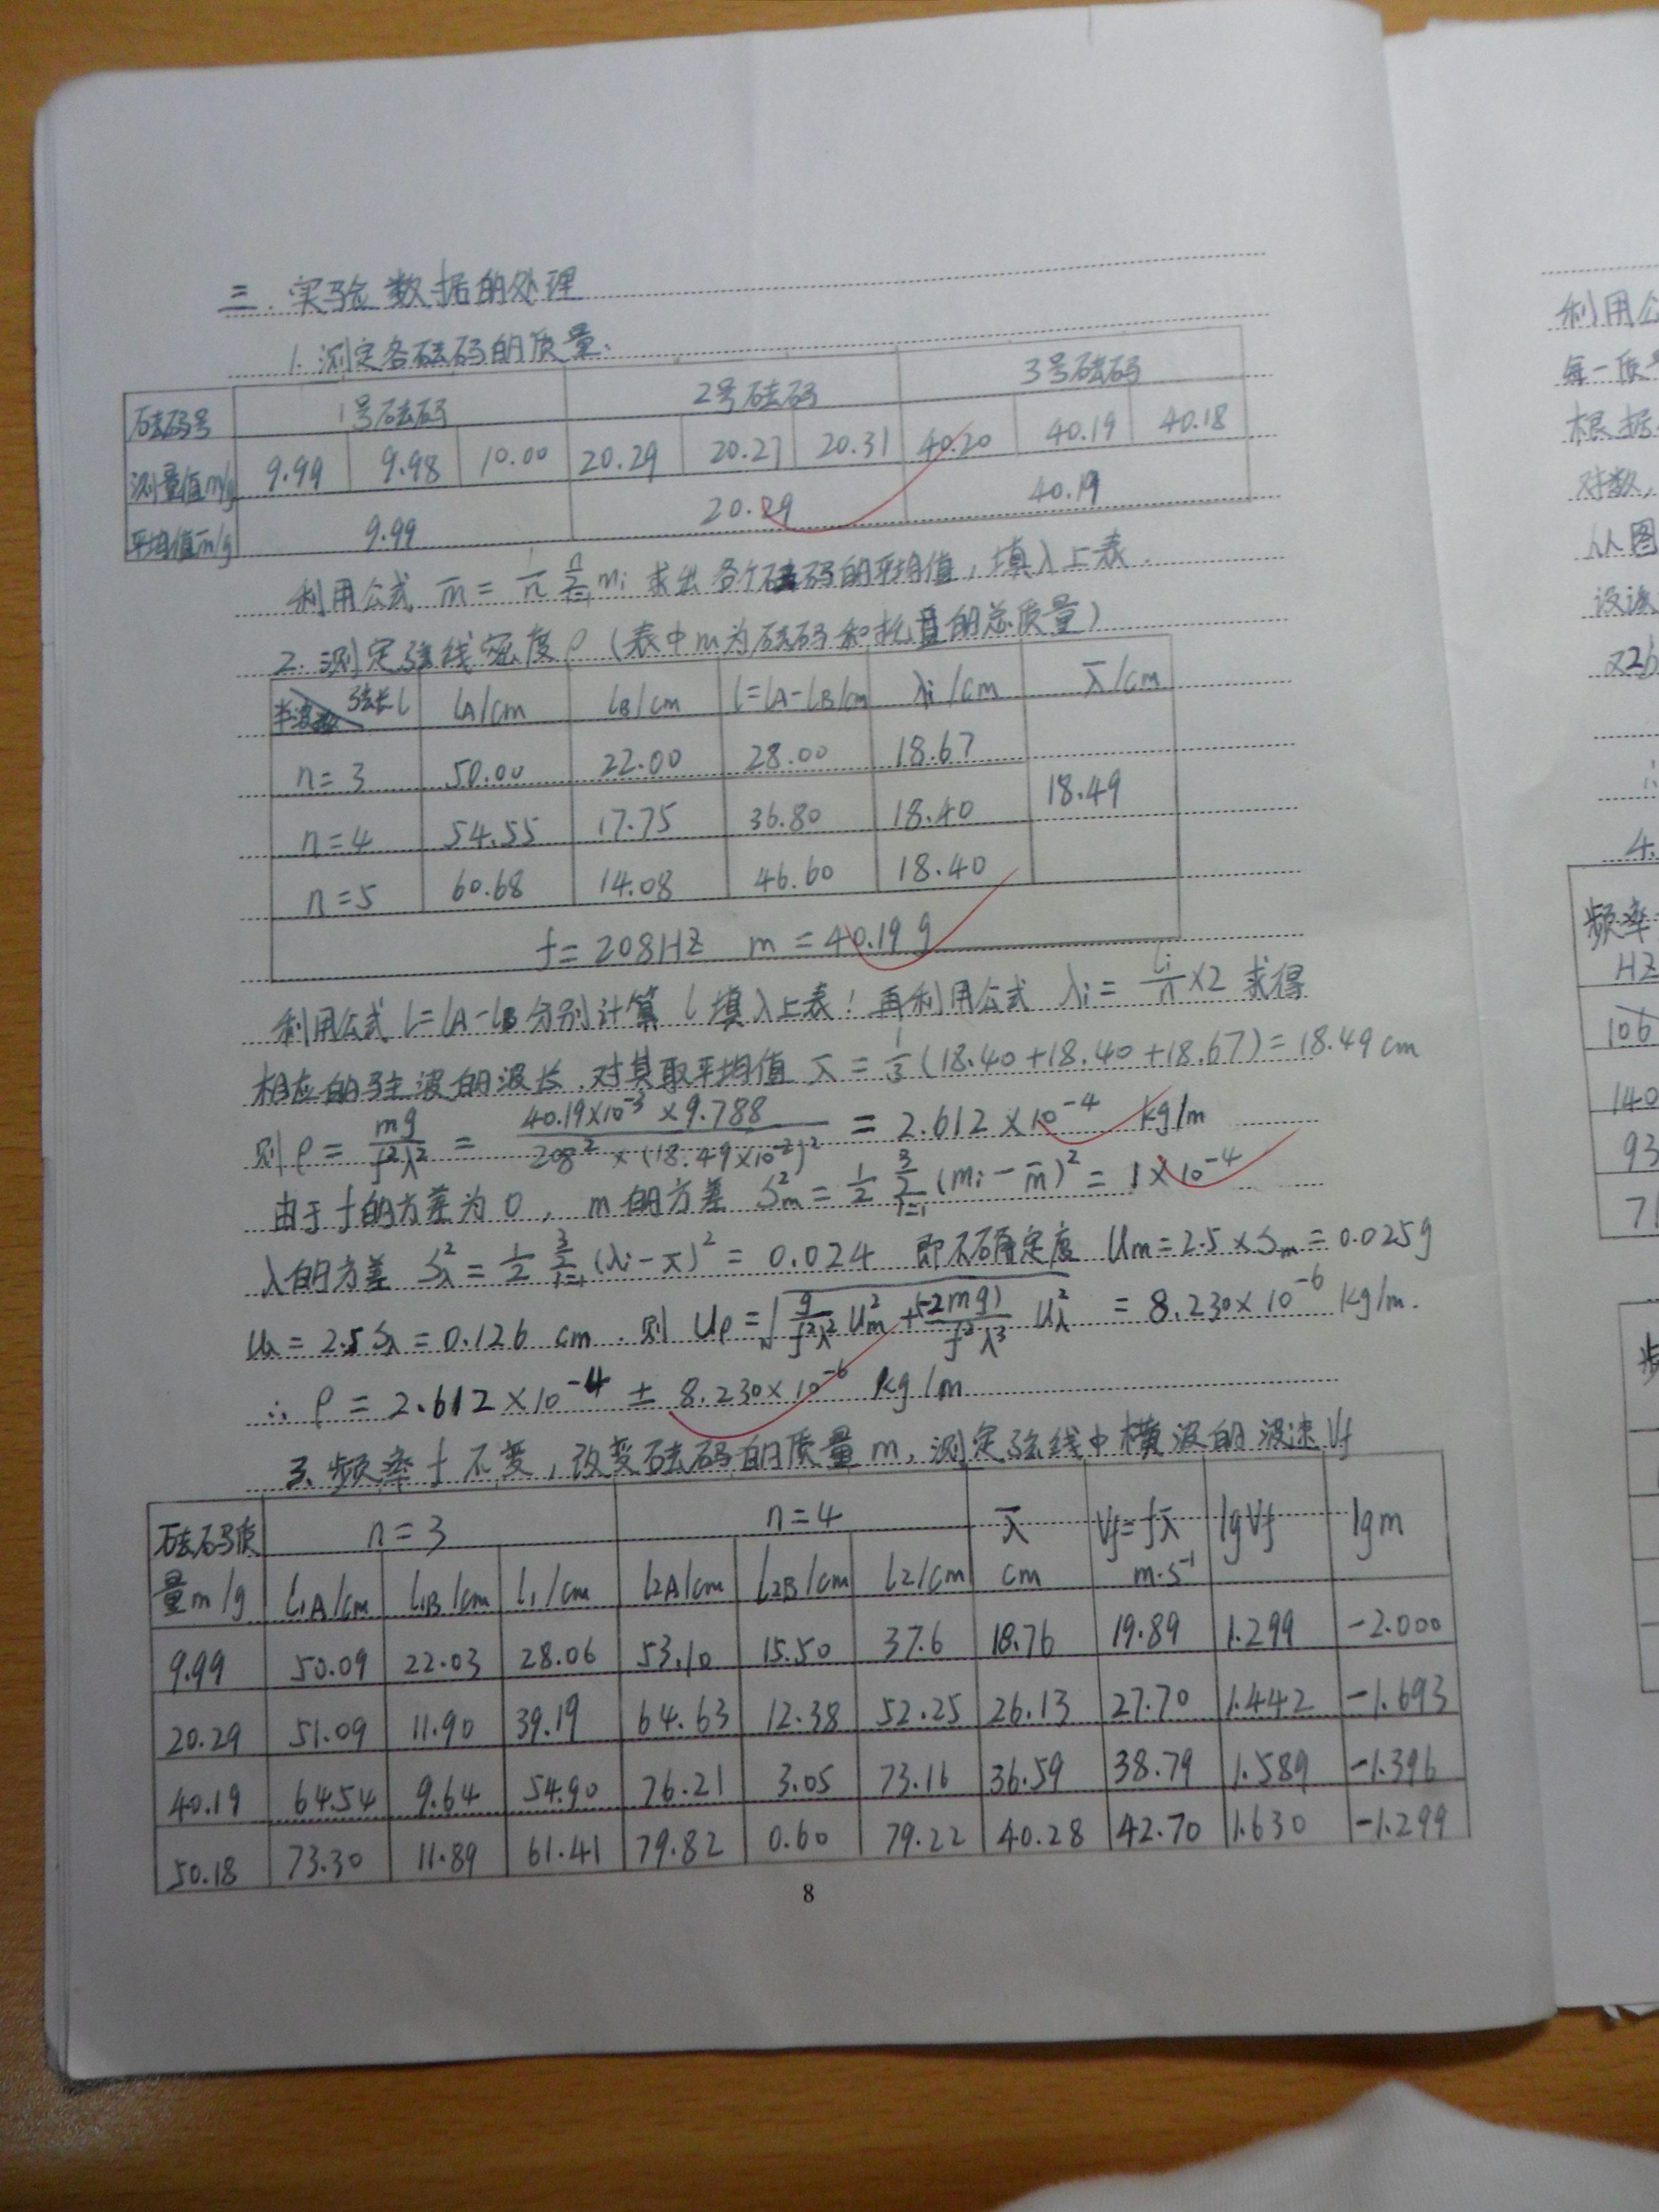 三. 实验数据的处理
1. 测定各砝码的质量:
砝码号 1号砝码 2号砝码 3号砝码
测量值m/g 9.99 9.98 10.00 20.29 20.27 20.31 40.20 40.19 40.18
平均值m̄/g 9.99 20.29 40.19
利用公式 m̄ = 1/n Σ(i=1→n) mi 求出各个砝码的平均值, 填入上表.
2. 测定弦线密度ρ (表中m为砝码和托盘的总质量)
半波数 弦长l lA/cm lB/cm l=lA-lB/cm λi/cm λ̄/cm
n=3 50.00 22.00 28.00 18.67
18.49
n=4 54.55 17.75 36.80 18.40
n=5 60.68 14.08 46.60 18.40
f=208HZ m=40.19g
利用公式 l=lA-lB 分别计算 l 填入上表! 再利用公式 λi = li/n ×2 求得
相应的驻波的波长. 对其取平均值 λ̄ = 1/3 (18.40+18.40+18.67) = 18.49cm
则 ρ = mg/f²λ² = 40.19×10⁻³×9.788/208²×(18.49×10⁻²)² = 2.612×10⁻⁴ kg/m
由于f的方差为0, m的方差 S²m = 1/2 Σ(i=1→3) (mi-m̄)² = 1×10⁻⁴
λ的方差 S²λ = 1/2 Σ(i=1→3) (λi-λ̄)² = 0.024 即不确定度 Um = 2.5×Sm = 0.025g
Uλ = 2.5Sλ = 0.126 cm. 则 Uρ = √(g/f²λ² U²m + (-2mg)/f²λ³ U²λ) = 8.230×10⁻⁶ kg/m.
∴ ρ = 2.612×10⁻⁴ ± 8.230×10⁻⁶ kg/m
3、频率f不变, 改变砝码的质量m, 测定弦线中横波的波速Vf
砝码质 n=3 n=4 λ̄ Vf=fλ̄ lgVf lgm
量m/g l1A/cm l1B/cm l1/cm l2A/cm l2B/cm l2/cm cm m·s⁻¹
9.99 50.09 22.03 28.06 53.10 15.50 37.6 18.76 19.89 1.299 -2.000
20.29 51.09 11.90 39.19 64.63 12.38 52.25 26.13 27.70 1.442 -1.693
40.19 64.54 9.64 54.90 76.21 3.05 73.16 36.59 38.79 1.589 -1.396
50.18 73.30 11.89 61.41 79.82 0.60 79.22 40.28 42.70 1.630 -1.299
8
利用公
每一质
根据
对数,
从图
设该
又26
4.
频率
HZ
106
140
93
71